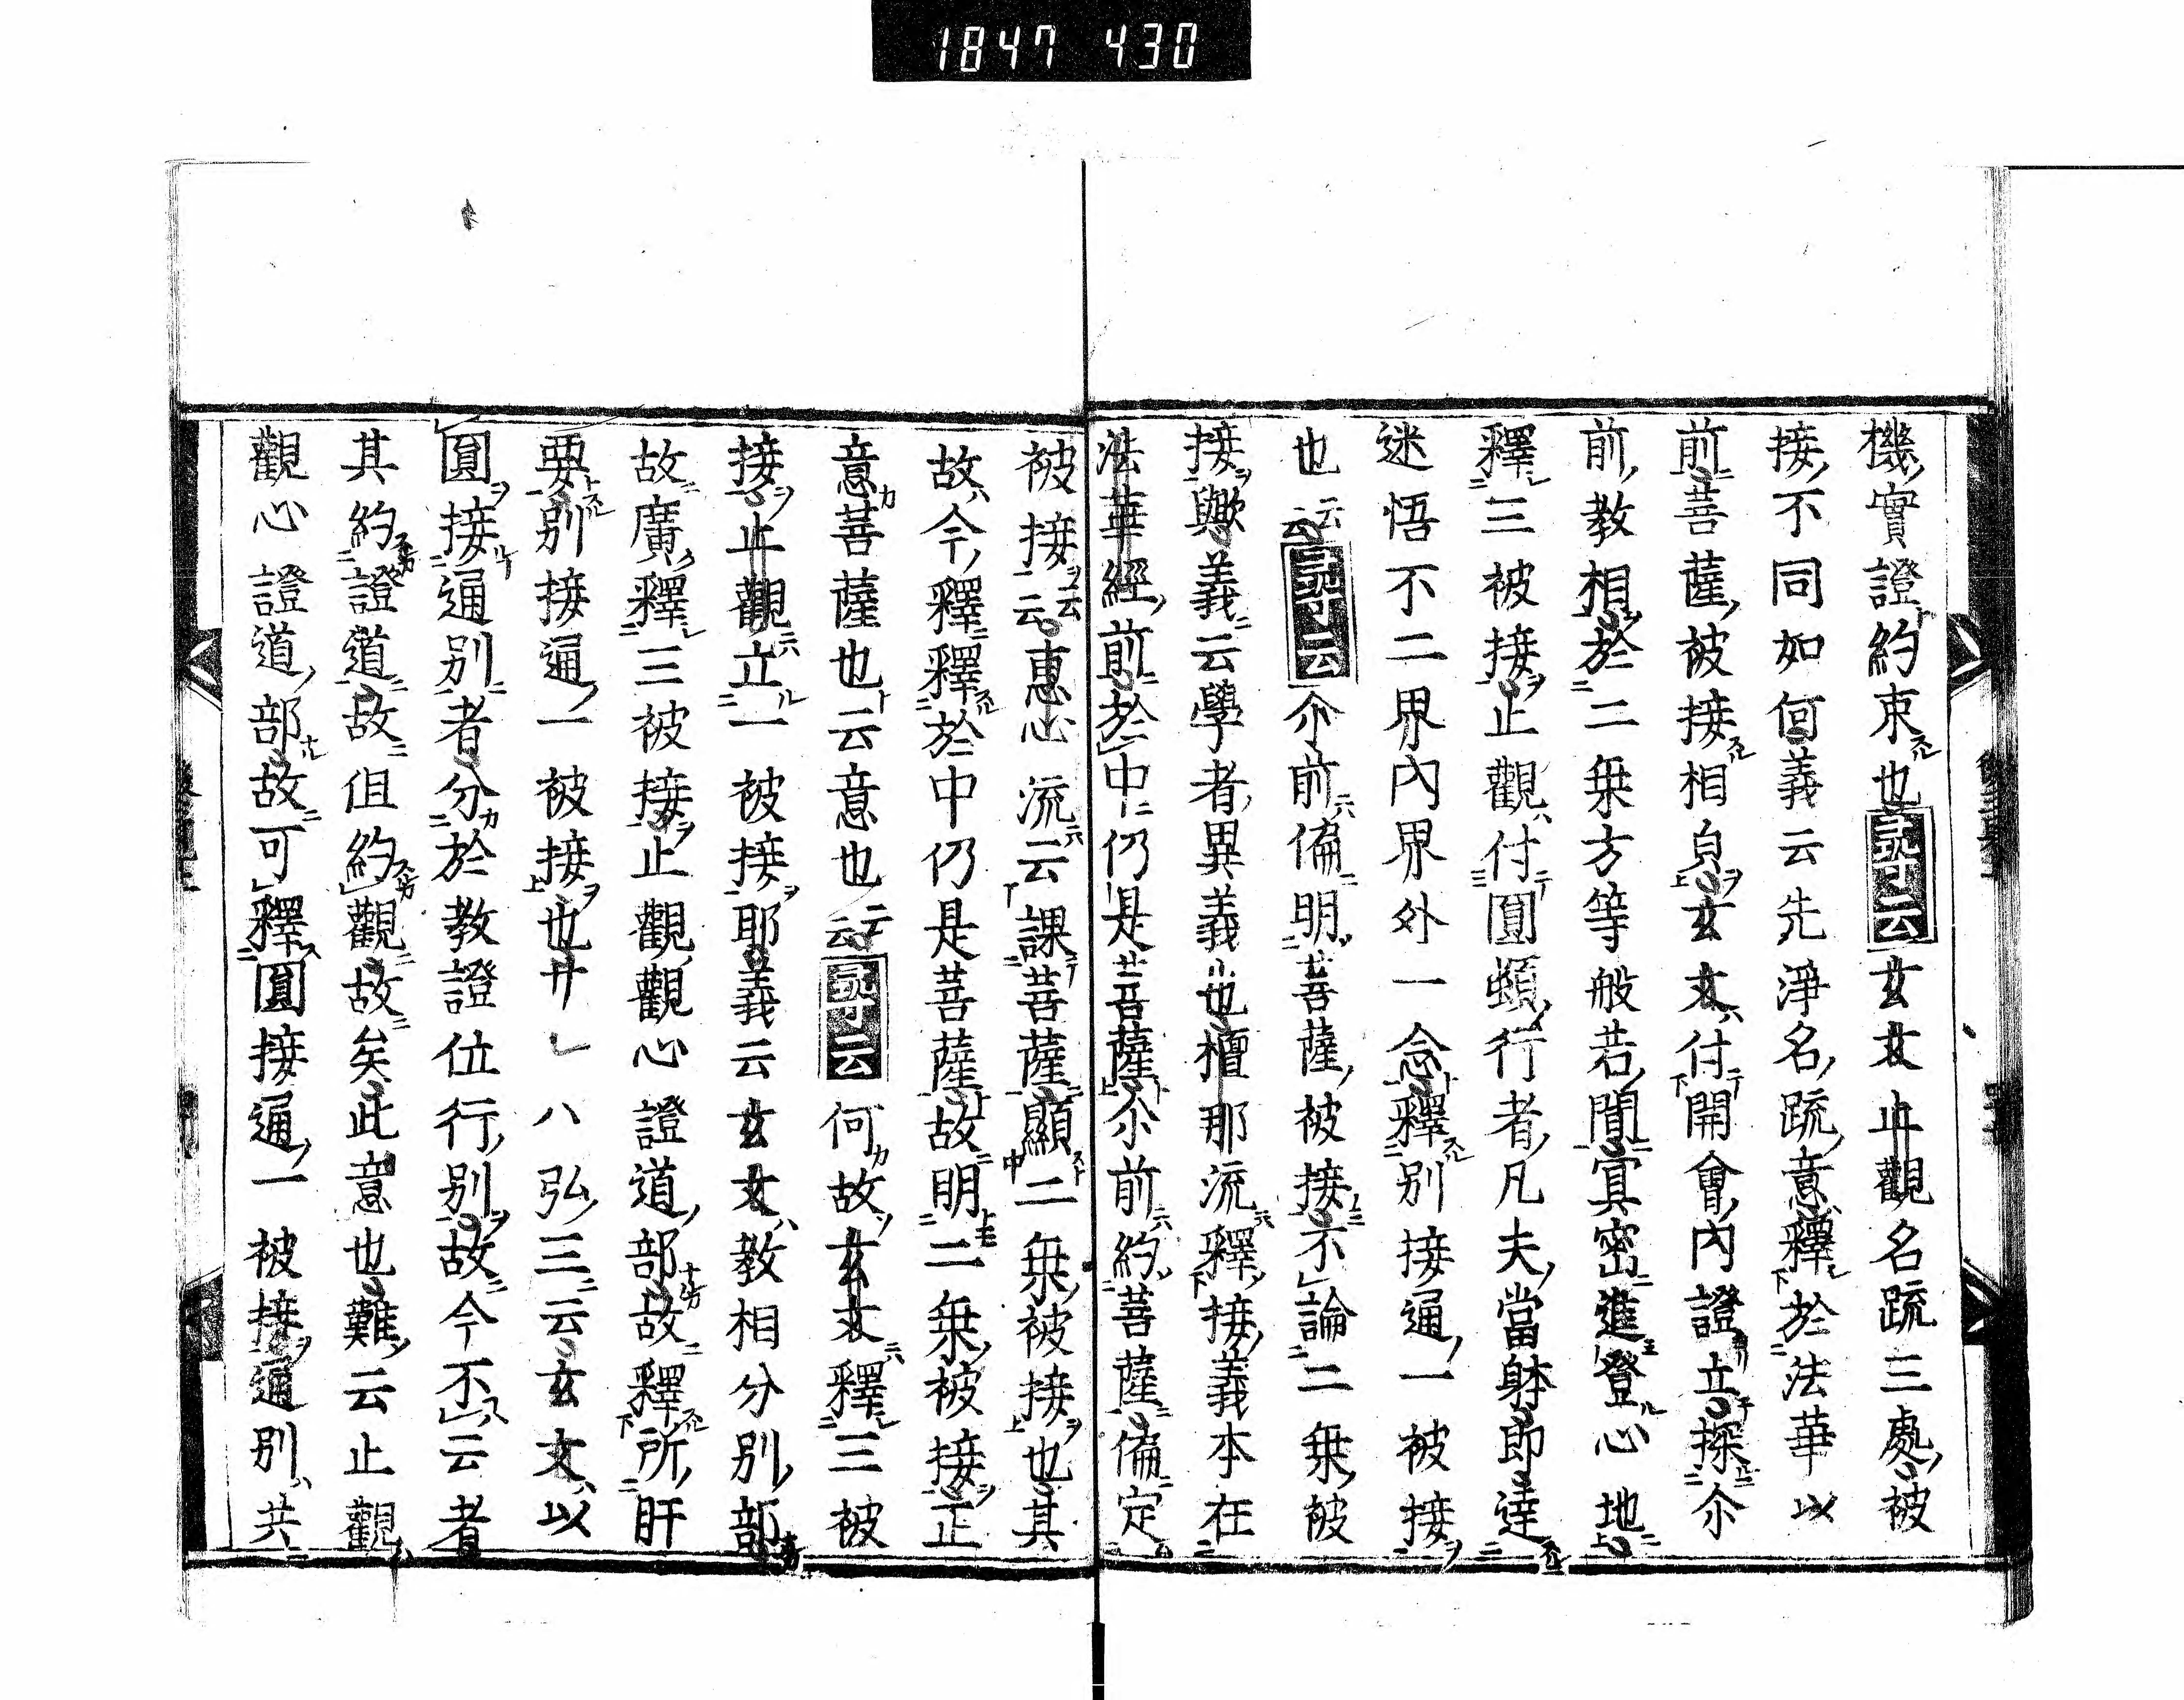 1847 430
機實證約束也尋云玄文止觀名疏三處被
接不同如何義云先淨名疏意釋於法華以
前菩薩被接相貞玄文付開會內證立探尒
前教相於二乗方等般若聞冥密進登心地
釋三被接止觀付圓頓行者凡夫當躰即達
迷悟不二界內界外一念釋別接通一被接
也云云尋云尒前偏明菩薩被接不論二乗被
接歟義云學者異義也檀那流釋接義本在
法華經前於中仍是菩薩尒前約菩薩偏定
被接云惠心流云課菩薩顯二乗被接也其
故今釋釋於中仍是菩薩故明二乗被接正
意菩薩也云意也云云尋云何故玄文釋三被
接止觀立一被接耶義云玄文教相分別部
故廣釋三被接止觀觀心證道部故釋所肝
要別接通一被接也廿八弘三云玄文以
圓接通別者分於教證位行別故今不云者
其約證道故但約觀故矣此意也難云止觀
觀心證道部故可釋圓接通一被接通別共